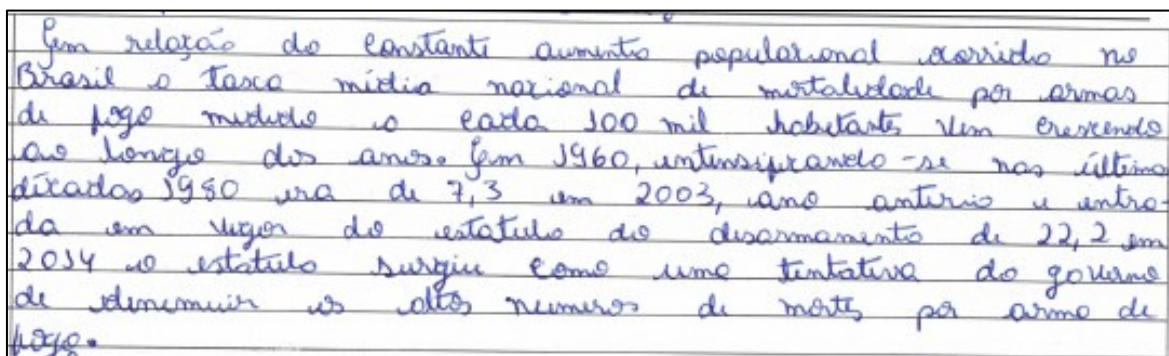 Em relação do constante aumento populacional ocorrido no
Brasil a taxa mídia nacional de mortalidade por armas
de fogo medido a cada 100 mil habitantes vem crescendo
ao longo dos anos. Em 1960, intensificando-se nas última
décadas 1980 era de 7,3 em 2003, ano anterio e entra-
da em vigor do estatulo do desarmamento de 22,2 em
2014 o estatulo surgiu como uma tentativa do governo
de dinimuir os altos numeros de mortes por arma de
fogo.